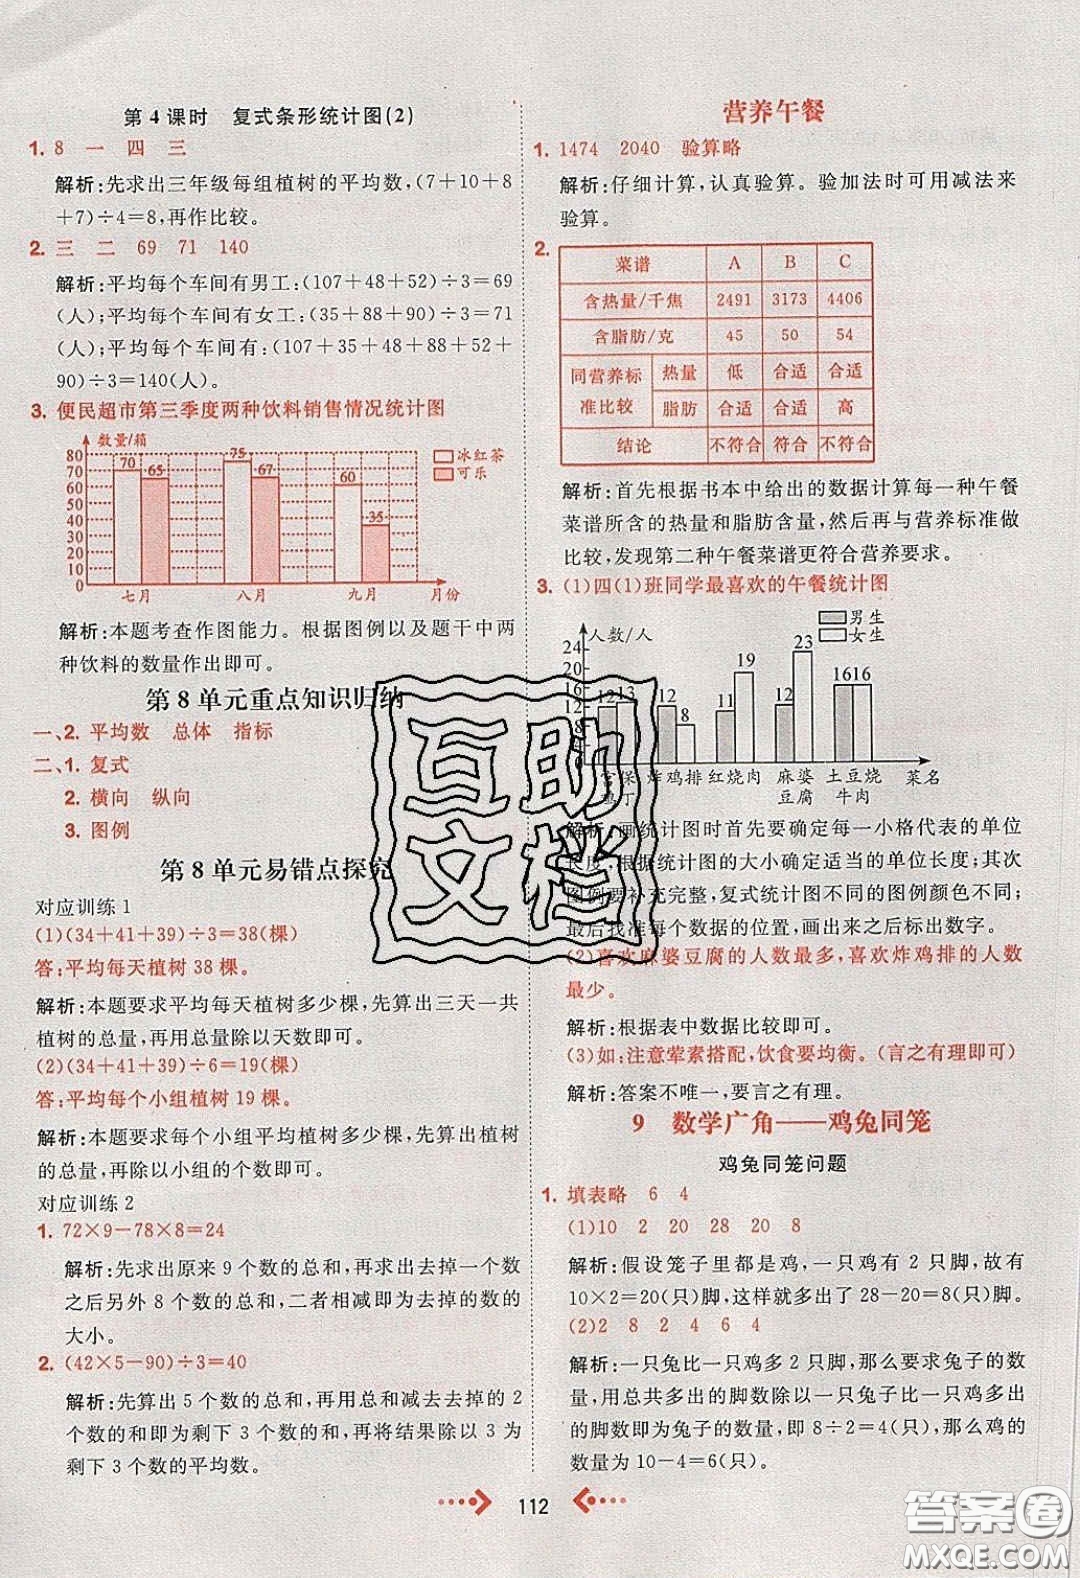 第4课时　复式条形统计图(2)
1. 8　一　四　三
解析:先求出三年级每组植树的平均数,(7+10+8
+7)÷4=8,再作比较。
2. 三　二　69　71　140
解析:平均每个车间有男工:(107+48+52)÷3=69
(人);平均每个车间有女工:(35+88+90)÷3=71
(人);平均每个车间有:(107+35+48+88+52+
90)÷3=140(人)。
3. 便民超市第三季度两种饮料销售情况统计图
数量/箱
冰红茶
可乐
80
70
60
50
40
30
20
10
0
70　65　75　67　60　35
七月　八月　九月　月份
解析:本题考查作图能力。根据图例以及题干中两
种饮料的数量作出即可。
第8单元重点知识归纳
一、2. 平均数　总体　指标
二、1. 复式
2. 横向　纵向
3. 图例
第8单元易错点探究
对应训练1
(1)(34+41+39)÷3=38(棵)
答:平均每天植树38棵。
解析:本题要求平均每天植树多少棵,先算出三天一共
植树的总量,再用总量除以天数即可。
(2)(34+41+39)÷6=19(棵)
答:平均每个小组植树19棵。
解析:本题要求每个小组平均植树多少棵,先算出植树
的总量,再除以小组的个数即可。
对应训练2
1. 72×9-78×8=24
解析:先求出原来9个数的总和,再求出去掉一个数
之后另外8个数的总和,二者相减即为去掉的数的
大小。
2. (42×5-90)÷3=40
解析:先算出5个数的总和,再用总和减去去掉的2
个数的和即为剩下3个数的和,再将结果除以3即为
剩下3个数的平均数。
营养午餐
1. 1474　2040　验算略
解析:仔细计算,认真验算。验加法时可用减法来
验算。
2.
菜谱　A　B　C
含热量/千焦　2491　3173　4406
含脂肪/克　45　50　54
同营养标准比较　热量　低　合适　合适
脂肪　合适　合适　高
结论　不符合　符合　不符合
解析:首先根据书本中给出的数据计算每一种午餐
菜谱所含的热量和脂肪含量,然后再与营养标准做
比较,发现第二种午餐菜谱更符合营养要求。
3. (1)四(1)班同学最喜欢的午餐统计图
人数/人
男生
女生
24
20
16
12
8
4
0
12　13　12　8　12　19　12　23　16　16
宫保鸡丁　炸鸡排　红烧肉　麻婆豆腐　土豆烧牛肉　菜名
解析:画统计图时首先要确定每一小格代表的单位
长度,根据统计图的大小确定适当的单位长度;
图例要补充完整,复式统计图不同的图例颜色不同;
最后找准每个数据的位置,画出来之后标出数字。
(2)喜欢麻婆豆腐的人数最多,喜欢炸鸡排的人数
最少。
解析:根据表中数据比较即可。
(3)如:注意荤素搭配,饮食要均衡。(言之有理即可)
解析:答案不唯一,要言之有理。
9　数学广角——鸡兔同笼
鸡兔同笼问题
1. 填表略　6　4
(1)10　2　20　28　20　8
解析:假设笼子里都是鸡,一只鸡有2只脚,故有
10×2=20(只)脚,这样就多出了28-20=8(只)脚。
(2)2　8　2　4　6　4
解析:一只兔比一只鸡多2只脚,那么求兔子的数
量,用总共多出的脚数除以一只兔子比一只鸡多出
的脚数即为兔子的数量,即8÷2=4(只),那么鸡的
数量为10-4=6(只)。
112
互助
文档
答案圈
MXQE.COM